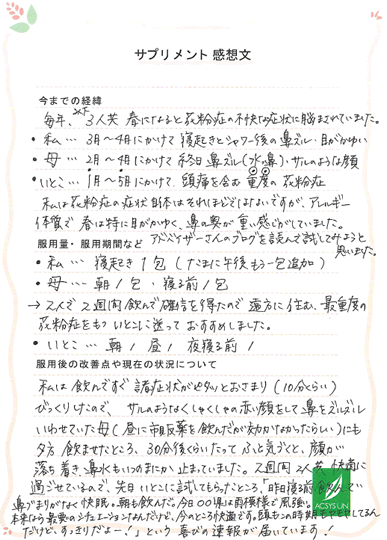 サプリメント 感想文
今までの経緯
毎年、以下3人共 春になると花粉症の不快な症状に悩まされていました。
・私… 3月〜4月にかけて 寝起きとシャワー後の鼻ズル・目がかゆい
・母… 2月〜4月にかけて 終日 鼻ズル(水の鼻)・サルのような顔
・いとこ… 1月〜5月にかけて 頭痛を含む 重度の花粉症
私は花粉症の症状自体はそれほどひどくはないですが、アレルギー
体質で 春は特に目がかゆく、鼻の奥が重い感じがしていました。
服用量・服用期間など アドバイザーさんのブログを読んで試してみようと
思いました。
・私… 寝起き1包 (たまに午後もう一包追加)
・母… 朝1包・寝る前1包
→2人で2週間飲んで確信を得たので 遠方に住む、最重度の
花粉症をもついとこに送って おすすめしました。
・いとこ… 朝1 昼1 夜寝る前1
服用後の改善点や現在の状況について
私は飲んですぐ 諸症状がピタッとおさまり (10分くらい)
びっくりしたので、サルのようなくしゃくしゃの赤い顔をして鼻をズルズル
いわせていた母(昼に市販薬を飲んだが効かなかったらしい)にも
夕方 飲ませたところ、30分後くらいたって ふと気づくと、顔が
落ち着き、鼻水もいつのまにか 止まっていました。2週間 2人共 快適に
過ごせているので、先日いとこに試してもらったところ、「昨日寝る前飲んでいて
鼻づまりがなく快眠。朝も飲んだ。今日〇〇県は雨模様で風強い。
本来なら最悪のシチュエーションなんだけど、今のところ快適です。頭もこの時期モヤモヤしてるん
だけど、すっきりだよー！」という 喜びの速報が届いています！
ACSYS UN